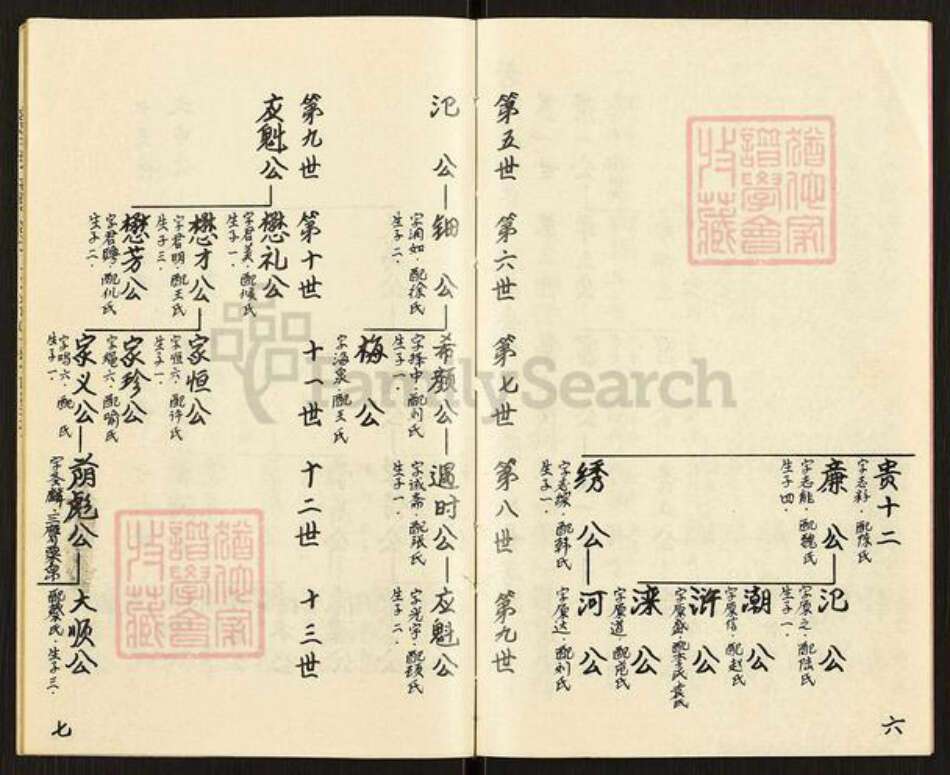 贵十二
字志科·配陈氏
廉公
字志能·配魏氏
生子四·
绣公
字志缘·配韩氏
生子一·
汜公
字原之·配陆氏
生子一·
潮公
字原信·配赵氏
浒公
字原盛·配李氏袁氏
涞公
字原道·配范氏
河公
字原达·配刘氏
六
第五世
第六世
第七世
第八世
第九世
汜公
钿公
字润如·配徐氏
生子二·
希颜公
字择中·配刘氏
生子一·
梅公
字海泉·配王氏
遇时公
字诚斋·配张氏
生子一·
应魁公
字光宇·配顾氏
生子二·
第九世
第十世
十一世
十二世
十三世
应魁公
懋礼公
字君美·配倾氏
生子一·
懋才公
字君明·配王氏
生子三·
懋芳公
字君聘·配仇氏
生子二·
家恒公
字恒六·配许氏
生子一·
家珍公
字绳六·配喻氏
家义公
字鸣六·配 氏
生子一·
荫彪公
大顺公
配蔡氏·生子三·
七
猶他家譜學會收藏
猶他家譜學會收藏
FamilySearch